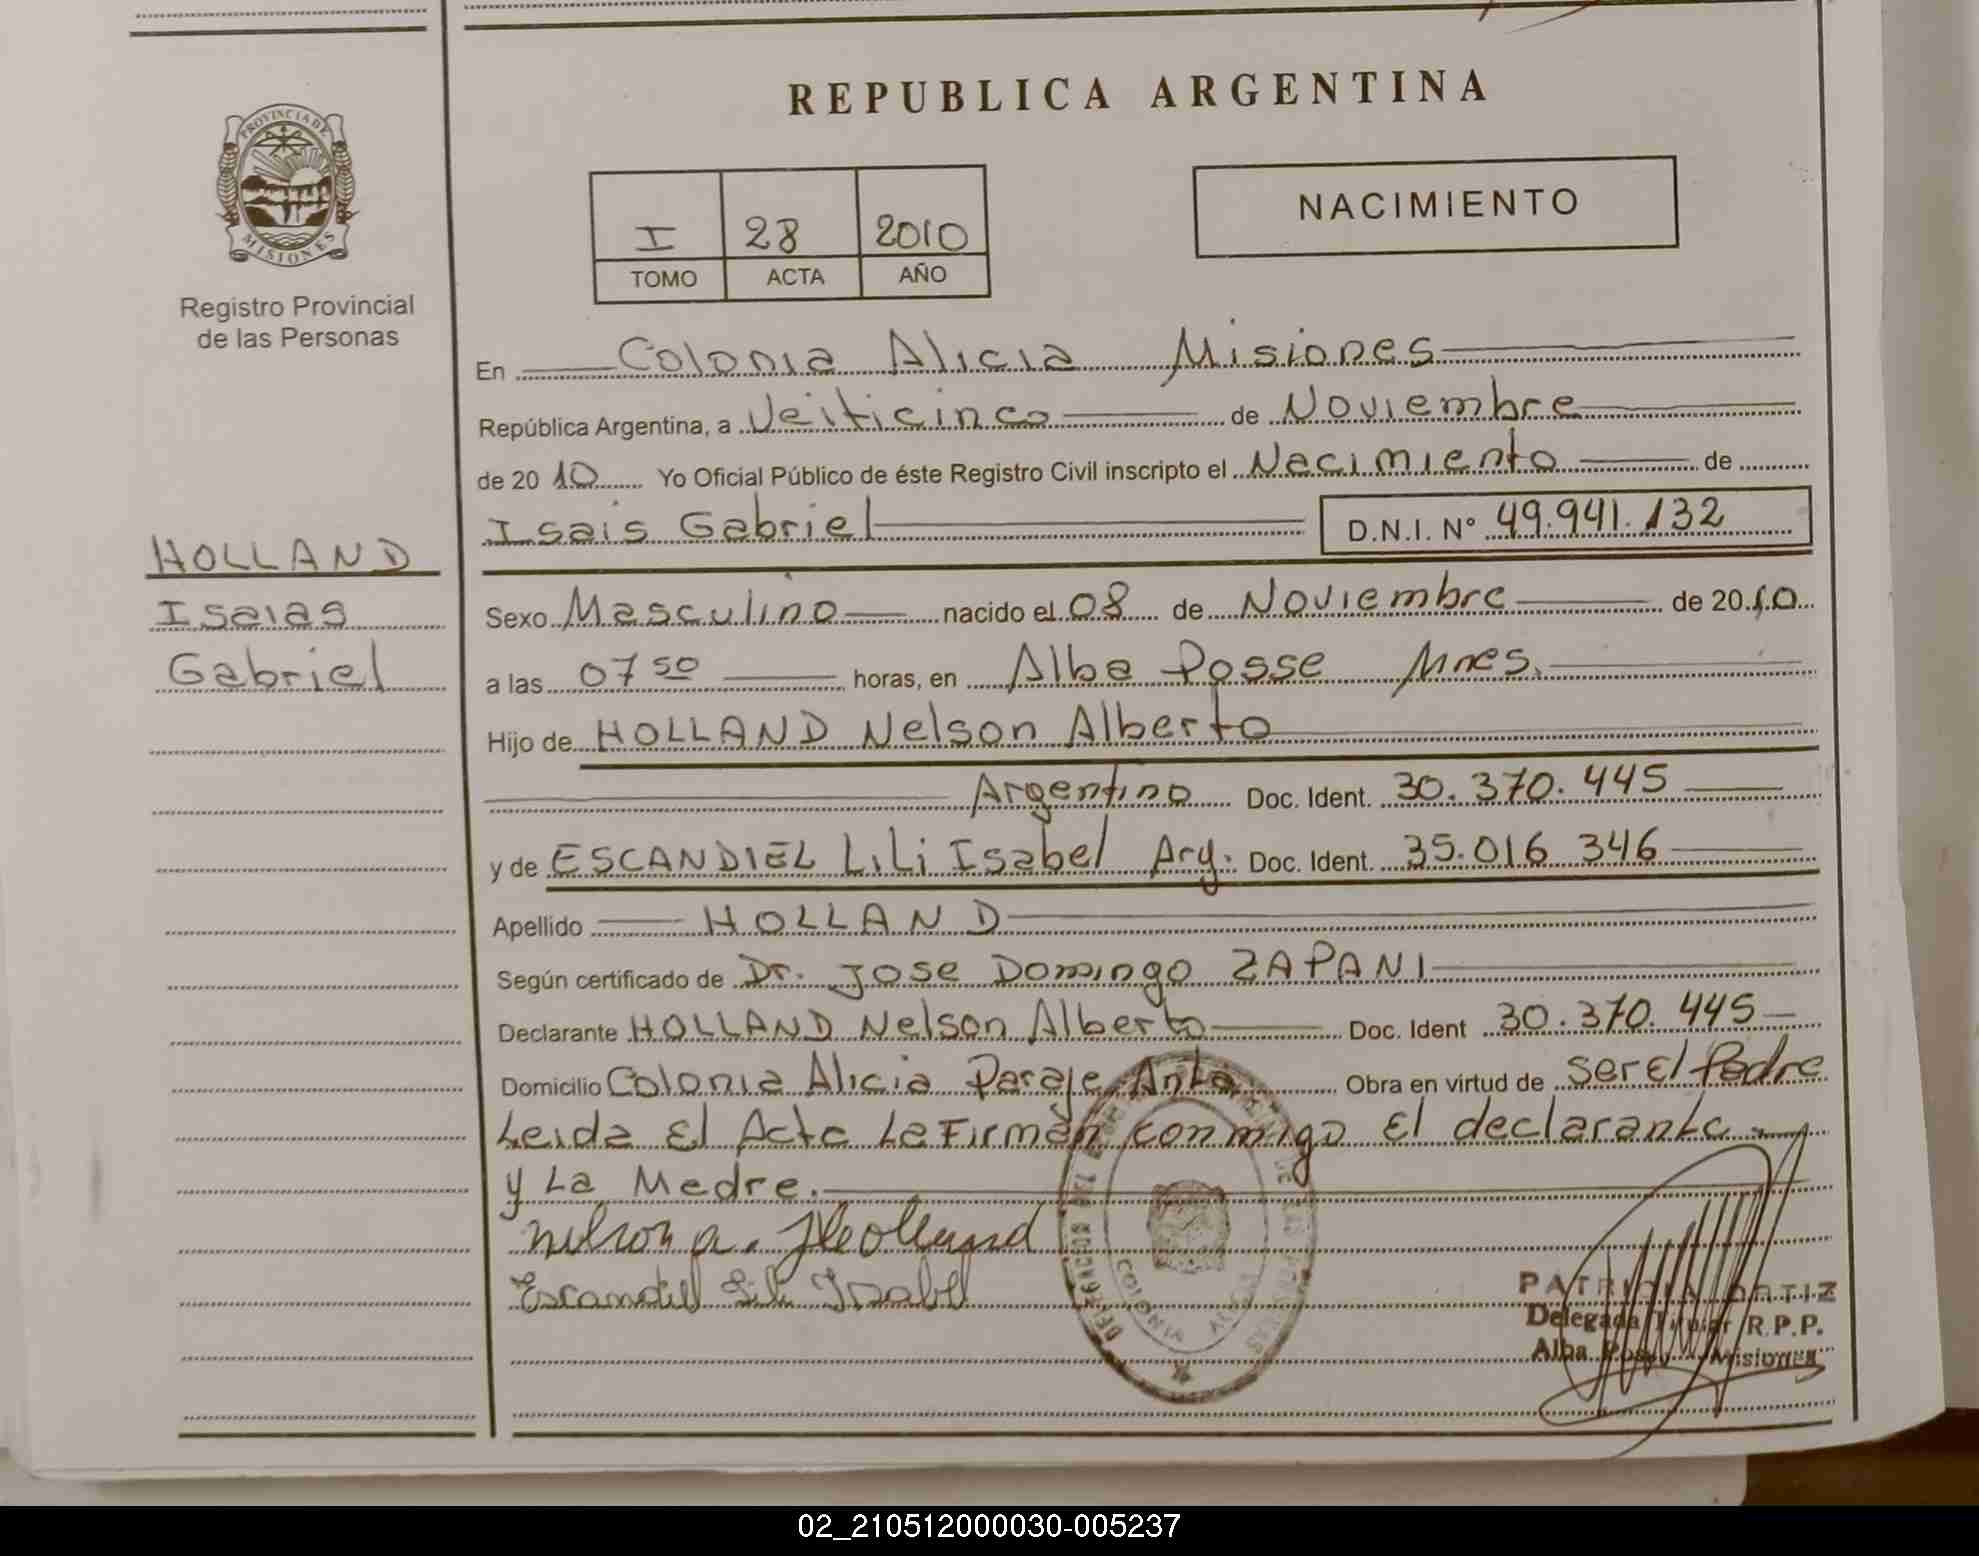 REPUBLICA ARGENTINA
PROVINCIA DE
MISIONES
Registro Provincial
de las Personas
I 28 2010
TOMO ACTA AÑO
NACIMIENTO
En Colonia Alicia Misiones
República Argentina, a Veiticinco de Noviembre
de 20 10 Yo Oficial Público de éste Registro Civil inscripto el Nacimiento de
Isais Gabriel D.N.I. N° 49.941.132
HOLLAND
Isaias
Gabriel
Sexo Masculino nacido el 08 de Noviembre de 20 10
a las 07 50 horas, en Alba Posse Mnes.
Hijo de HOLLAND Nelson Alberto
Argentino Doc. Ident. 30.370.445
y de ESCANDIEL LiLi Isabel Arg. Doc. Ident. 35.016 346
Apellido HOLLAND
Según certificado de Dr. Jose Domingo ZAPANI
Declarante HOLLAND Nelson Alberto Doc. Ident 30.370.445
Domicilio Colonia Alicia Paraje Anta Obra en virtud de ser El Padre
Leida El Acta La Firman conmigo El declarante
y La Madre.
Nelson A. Holland
Escandiel Lili Isabel
COLONIA ALICIA
PATRICIA ORTIZ
Delegada Titular R.P.P.
Alba Posse - Misiones
02_210512000030-005237